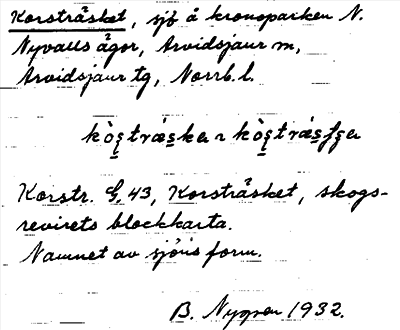 Korsträsket, sjö å kronoparken N.
Nyvalls ägor, Arvidsjaur m,
Arvidsjaur tg, Norrb. l.
Korstr. G, 43, Korsträsket, skogs-
revirets blockkarta.
Namnet av sjöns form.
B. Nygren 1932.